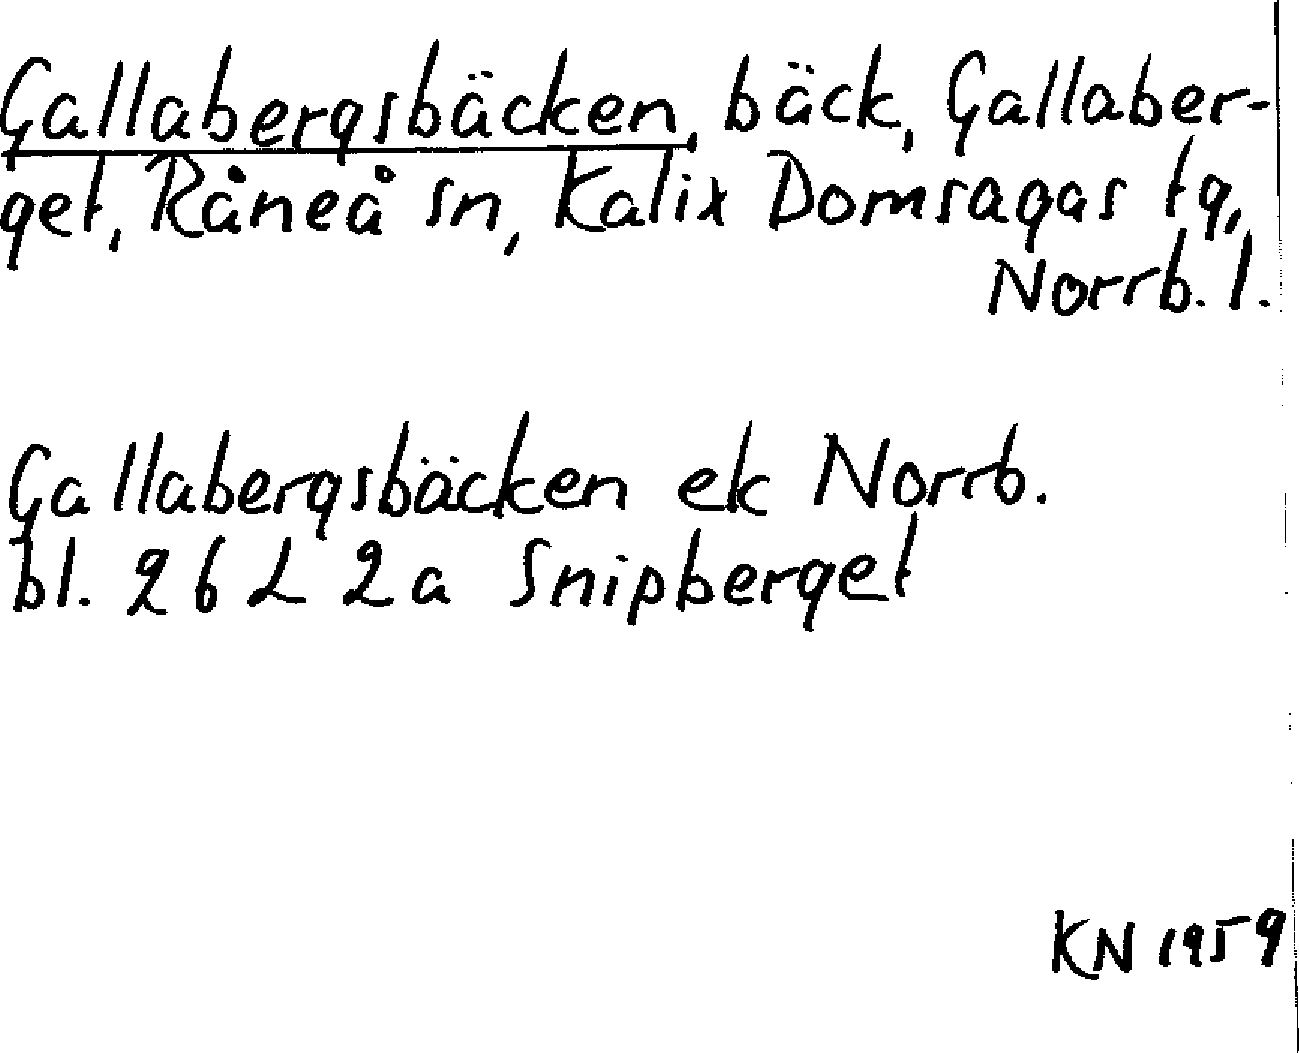 Gallabergsbäcken, bäck, Gallaber-
get, Råneå sn, Kalix Domsagas tg,
Norrb. l.
Gallabergsbäcken ek Norrb.
bl. 26 L 2a Snipberget
KN 1959